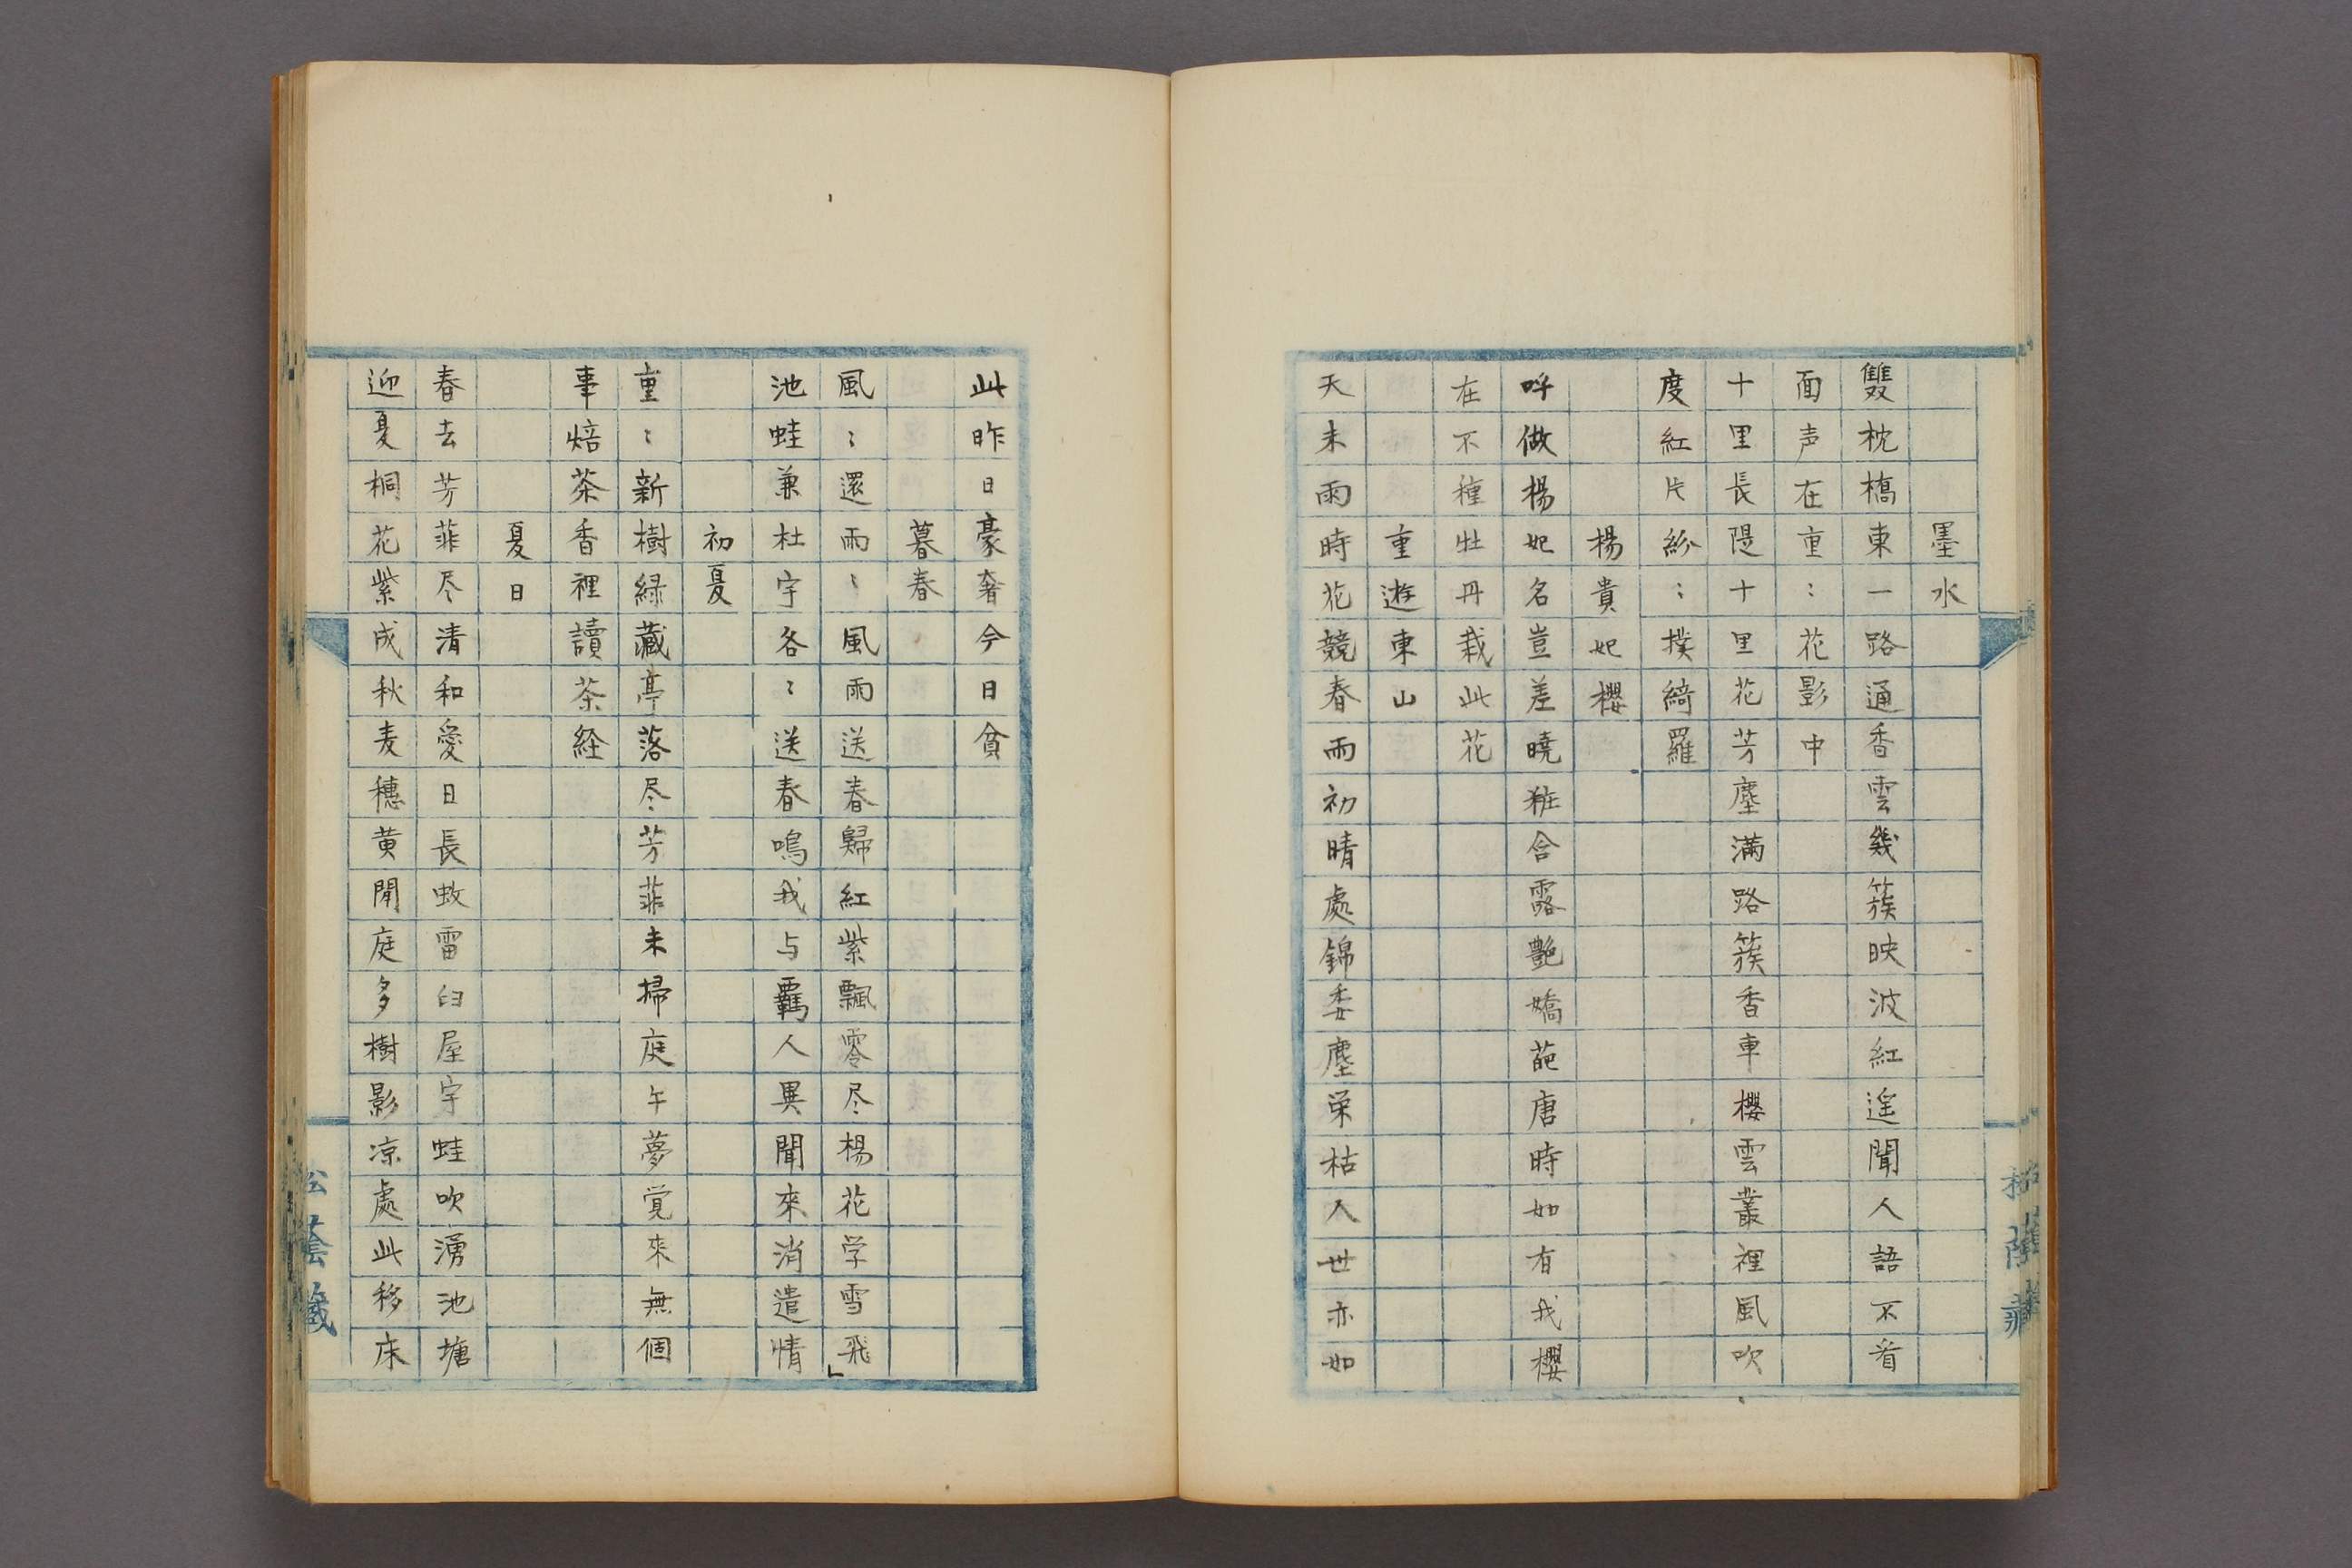 墨水
雙枕橋東一路通香雲幾簇映波紅遥聞人語不看
面声在重〻花影中
十里長隄十里花芳塵満路簇香車櫻雲叢裡風吹
度紅片紛〻撲綺羅
楊貴妃櫻
呼做楊妃名豈差曉粧含露艶嬌葩唐時如有我櫻
在不種牡丹栽此花
重遊東山
天未雨時花競春雨初晴處錦委塵栄枯人世亦如
此昨日豪奢今日貧
暮春
風〻還雨〻風雨送春歸紅紫飄零尽楊花学雪飛」
池蛙兼杜宇各〻送春鳴我与羈人異聞來消遣情
初夏
重〻新樹緑藏亭落尽芳菲未掃庭午夢覚來無個
事焙茶香裡讀茶経
夏日
春去芳菲尽清和愛日長蚊雷臼屋宇蛙吹湧池塘
迎夏桐花紫成秋麦穗黄閒庭多樹影凉處此移床
松蔭藏
松蔭藏